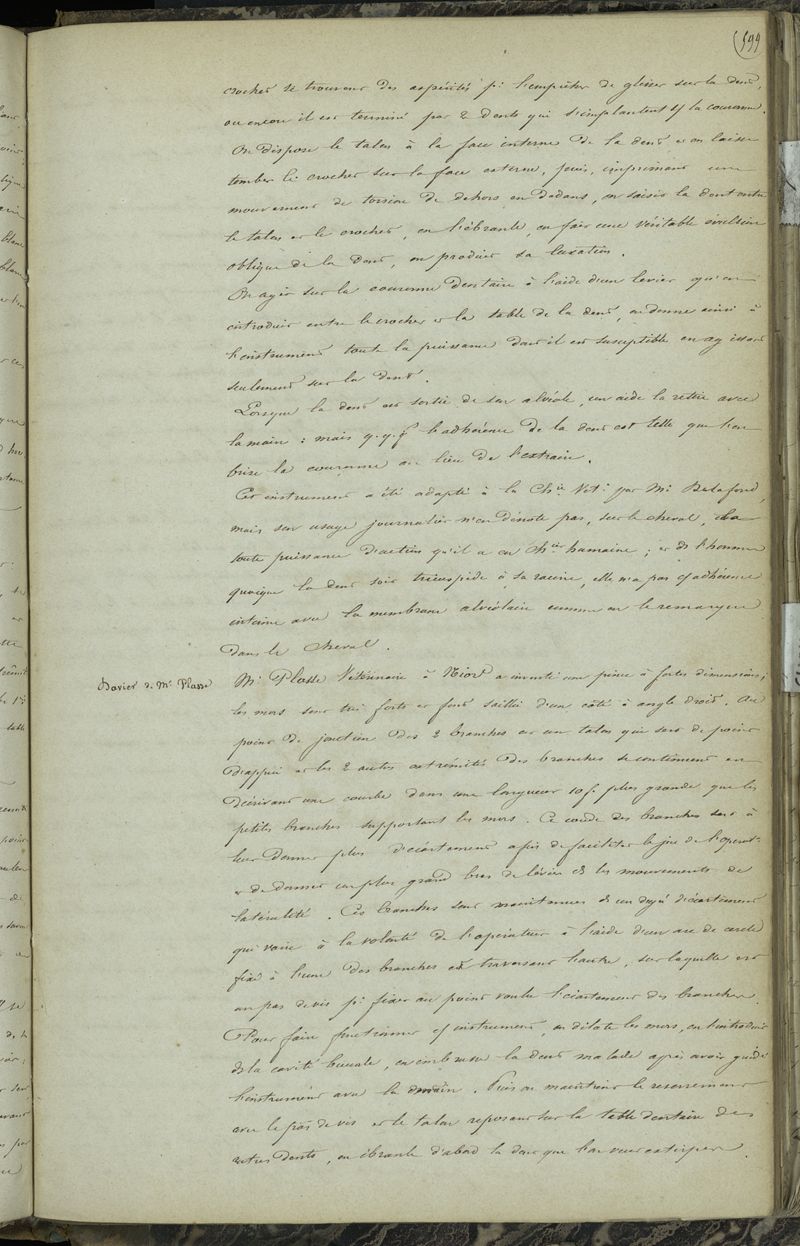 599
crochet se trouvent des aspérités pr l'empêcher de glisser sur la dent,
ou encore il est terminé par 2 dents qui s'implantent sf la couronne.
On dispose le talon à la face interne de la dent et on laisse
tomber le crochet sur la face externe, puis, imprimant un
mouvement de torsion de dehors en dedans, on saisit la dent entre
le talon et le crochet, on l'ébranle, on fait une véritable évulsion
oblique de la dent, on produit sa luxation.
On agit sur la couronne dentaire à l'aide d'un levier qu'on
introduit entre le crochet et la table de la dent, on donne ainsi à
l'instrument toute la puissance dont il est susceptible en agissant
seulement sur la dent.
Lorsque la dent est sortie de son alvéole, un aide la retire avec
la main : mais q.q.f. l'adhérence de la dent est telle que l'on
brise la couronne au lieu de l'extraire.
Cet instrument a été adapté à la Chie Vetre par Mr Delafond,
mais son usage journalier n'en dénote pas, sur le cheval, la
toute puissance d'action qu'il a en Chie humaine ; et ds l'homme
quoique la dent soit tricuspide à sa racine, elle n'a pas cf adhérence
intime avec la membrane alvéolaire comme on le remarque
dans le cheval.
Davier de Mr Plasse
Mr Plasse Vétérinaire à Niort a inventé une pince à fortes dimensions ;
les mors sont très forts et font saillie d'un côté à angle droit. Au
point de jonction des 2 branches est un talon qui sert de point
d'appui et les 2 autres extrémités des branches se continuent en
décrivant une courbe dans une longueur 10 f. plus grande que les
petites branches supportant les mors. Ce coude des branches sert à
leur donner plus d'écartement afin de faciliter le jeu de l'operatr
et de donner un plus grand bras de lévier ds les mouvements de
latéralité. Ces branches sont maintenues ds un degré d'écartement
qui varie à la volonté de l'opérateur à l'aide d'un arc de cercle
fixé à l'une des branches et traversant l'autre, sur laquelle est
un pas de vis pr fixer au point voulu l'écartement des branches.
Pour faire fonctionner cf instrument, on dilate les mors, on l'introduit
ds la cavité buccale, on embrasse la dent malade après avoir guidé
l'instrument avec la main. Puis on maintient le resserrement
avec le pas de vis et le talon reposant sur la table dentaire des
autres dents, on ébranle d'abord la dent que l'on veut extirper.